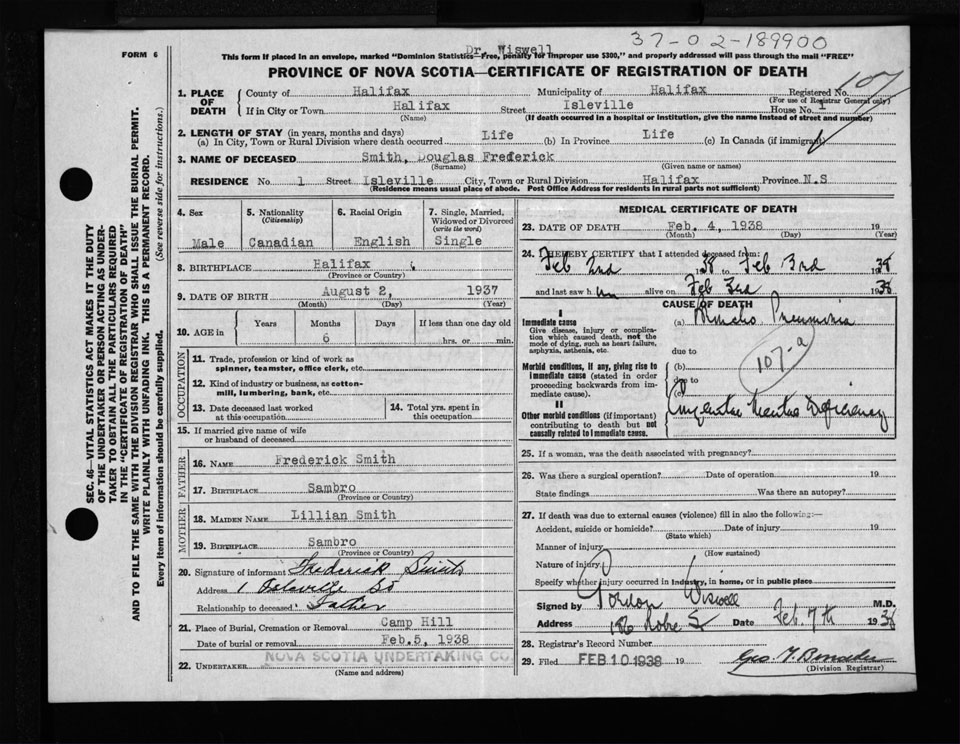 37-02-189900
Dr. Wiswell
FORM 6
This form if placed in an envelope, marked "Dominion Statistics—Free, penalty for improper use $300," and properly addressed will pass through the mail "FREE"
PROVINCE OF NOVA SCOTIA—CERTIFICATE OF REGISTRATION OF DEATH
107
SEC. 46—VITAL STATISTICS ACT MAKES IT THE DUTY
OF THE UNDERTAKER OR PERSON ACTING AS UNDER-
TAKER TO OBTAIN ALL THE PARTICULARS REQUIRED
IN THE "CERTIFICATE OF REGISTRATION OF DEATH"
AND TO FILE THE SAME WITH THE DIVISION REGISTRAR WHO SHALL ISSUE THE BURIAL PERMIT.
WRITE PLAINLY WITH UNFADING INK. THIS IS A PERMANENT RECORD.
Every item of information should be carefully supplied. (See reverse side for instructions.)
1. PLACE OF DEATH
County of Halifax Municipality of Halifax Registered No.
(For use of Registrar General only)
If in City or Town Halifax Street Isleville House No. 1
(Name) (If death occurred in a hospital or institution, give the name instead of street and number)
2. LENGTH OF STAY (in years, months and days)
(a) In City, Town or Rural Division where death occurred Life (b) In Province Life (c) In Canada (if immigrant)
3. NAME OF DECEASED Smith, Douglas Frederick
(Surname) (Given name or names)
RESIDENCE No. 1 Street Isleville City, Town or Rural Division Halifax Province N.S
(Residence means usual place of abode. Post Office Address for residents in rural parts not sufficient)
4. Sex
Male
5. Nationality
(Citizenship)
Canadian
6. Racial Origin
English
7. Single, Married,
Widowed or Divorced
(write the word)
Single
8. BIRTHPLACE Halifax
(Province or Country)
9. DATE OF BIRTH August 2, 1937
(Month) (Day) (Year)
10. AGE in Years Months Days If less than one day old
6 hrs. or min.
OCCUPATION
11. Trade, profession or kind of work as
spinner, teamster, office clerk, etc.
12. Kind of industry or business, as cotton-
mill, lumbering, bank, etc.
13. Date deceased last worked
at this occupation
14. Total yrs. spent in
this occupation
15. If married give name of wife
or husband of deceased
FATHER
16. NAME Frederick Smith
17. BIRTHPLACE Sambro
(Province or Country)
MOTHER
18. MAIDEN NAME Lillian Smith
19. BIRTHPLACE Sambro
(Province or Country)
20. Signature of informant Frederick Smith
Address 1 Isleville St
Relationship to deceased Father
21. Place of Burial, Cremation or Removal Camp Hill
Date of burial or removal Feb.5, 1938
22. UNDERTAKER NOVA SCOTIA UNDERTAKING CO.
(Name and address)
MEDICAL CERTIFICATE OF DEATH
23. DATE OF DEATH Feb. 4, 1938 19
(Month) (Day) (Year)
24. I HEREBY CERTIFY that I attended deceased from:
Feb 2nd 1938 to Feb 3rd 1938
and last saw him alive on Feb 3rd 1938
CAUSE OF DEATH
I
Immediate cause
Give disease, injury or complica-
tion which caused death, not the
mode of dying, such as heart failure,
asphyxia, asthenia, etc.
(a) Broncho Pneumonia
due to
107-a
Morbid conditions, if any, giving rise to
immediate cause (stated in order
proceeding backwards from im-
mediate cause).
(b)
due to
(c)
II
Other morbid conditions (if important)
contributing to death but not
causally related to immediate cause.
Deficiency
25. If a woman, was the death associated with pregnancy?
26. Was there a surgical operation? Date of operation 19
State findings Was there an autopsy?
27. If death was due to external causes (violence) fill in also the following:—
Accident, suicide or homicide? Date of injury 19
(State which)
Manner of injury
(How sustained)
Nature of injury
Specify whether injury occurred in industry, in home, or in public place
Signed by Gordon Wiswell M.D.
Address 186 Robie St Date Feb. 7th 1938
28. Registrar's Record Number
29. Filed FEB 10 1938 19
(Division Registrar)